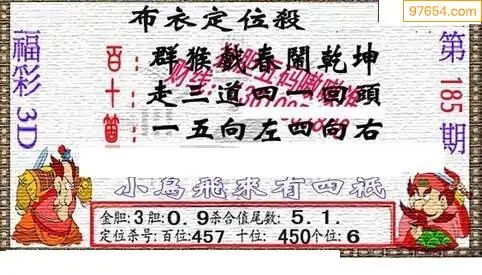 97654.com
布衣定位殺
福彩3D
第185期
百: 群猴戲春鬧乾坤
十: 走三道四一回頭
個: 一五向左四向右
小鳥飛來有四祇
金胆:3胆:0.9杀合值尾数:5.1.
定位杀号:百位:457 十位:450个位:6